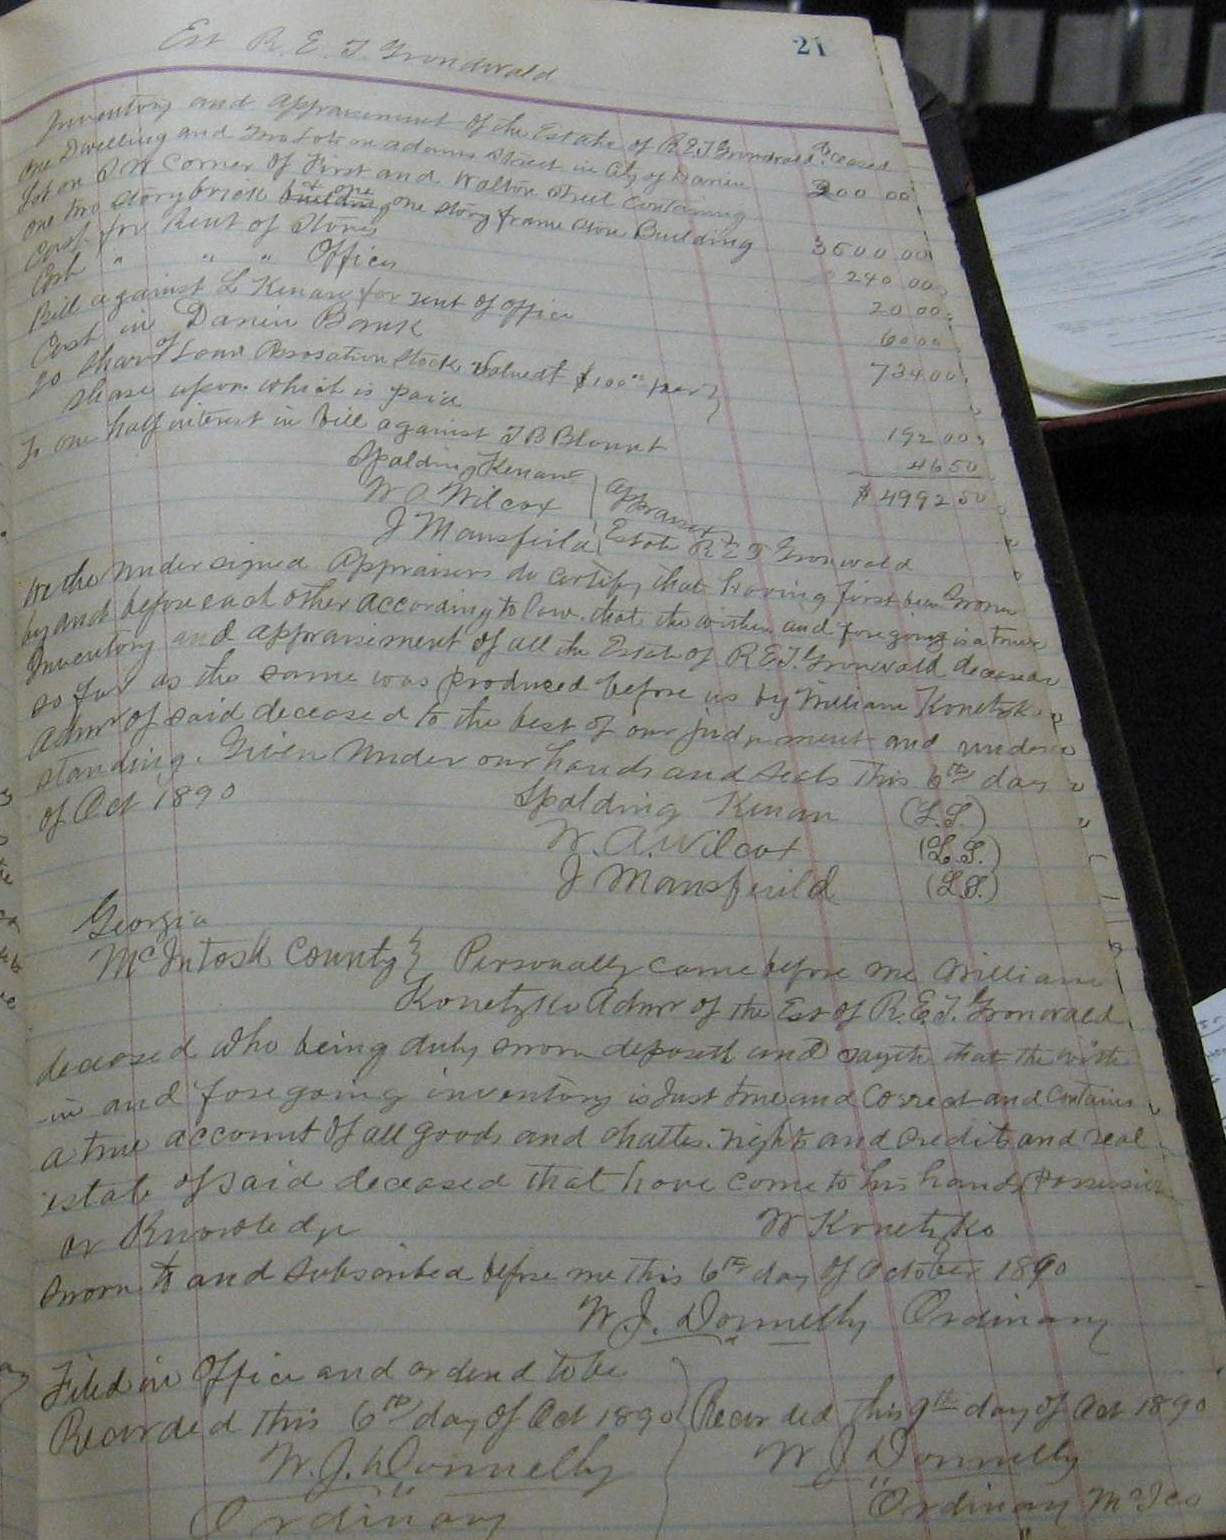 Est R. E. T. Gronwald
21
Inventory and appraisement of the Estate of R.E.T. Gronwald Deceased
One Dwelling and Two Lots on Adams Street in City of Darien 200 00
Lot on S W Corner of First and Walton Street Containing
one two story brick building & one one story frame store Building 3500 00
Cash for Rent of Stores 240 00
Cash " " " Offices 20 00
Bill against S Kenan for rent of office 60 00
Cash in Darien Bank 734 00
20 Shares of Loan Assosation Stock valued at $100 00 per }
share upon which is paid 192 00
To one half interest in bill against T B Blount 46 50
$ 4992 50
Spalding Kenan
W A Wilcox } Appraisers
J Mansfeild Estate R E T Gronwald
We the undersigned Appraisers do certify that having first been sworn
by and before each other According to law that the within and foregoing is a true
Inventory and appraisement of all the Estate of R E T. Gronwald deceased
so far as the same was produced before us by William Konetzko
Admr of said deceased to the best of our judgement and under
standing. Given under our hands and seals this 6th day
of Oct 1890
Spalding Kenan (L.S.)
W. A. Wilcox (L.S.)
J Mansfeild (L.S.)
Georgia
McIntosh County } Personally came before me William
Konetzko Admr of the Est of R.E.T. Gronwald
deceased who being duly sworn deposeth and sayth that the with
-in and foregoing inventory is Just true and Correct and Contains
a true account of all goods and chattes. rights and credits and real
estate of said deceased that have come to his hands, Possession
or Knowledge W Konetzko
Sworn to and subscribed before me this 6th day of October 1890
W. J. Donnelly Ordinary
Filed in office and ordered to be
Recorded this 6th day of Oct 1890
W. J. Donnelly
Ordinary
Recorded this 9th day of Oct 1890
W J Donnelly
Ordinary McI Co